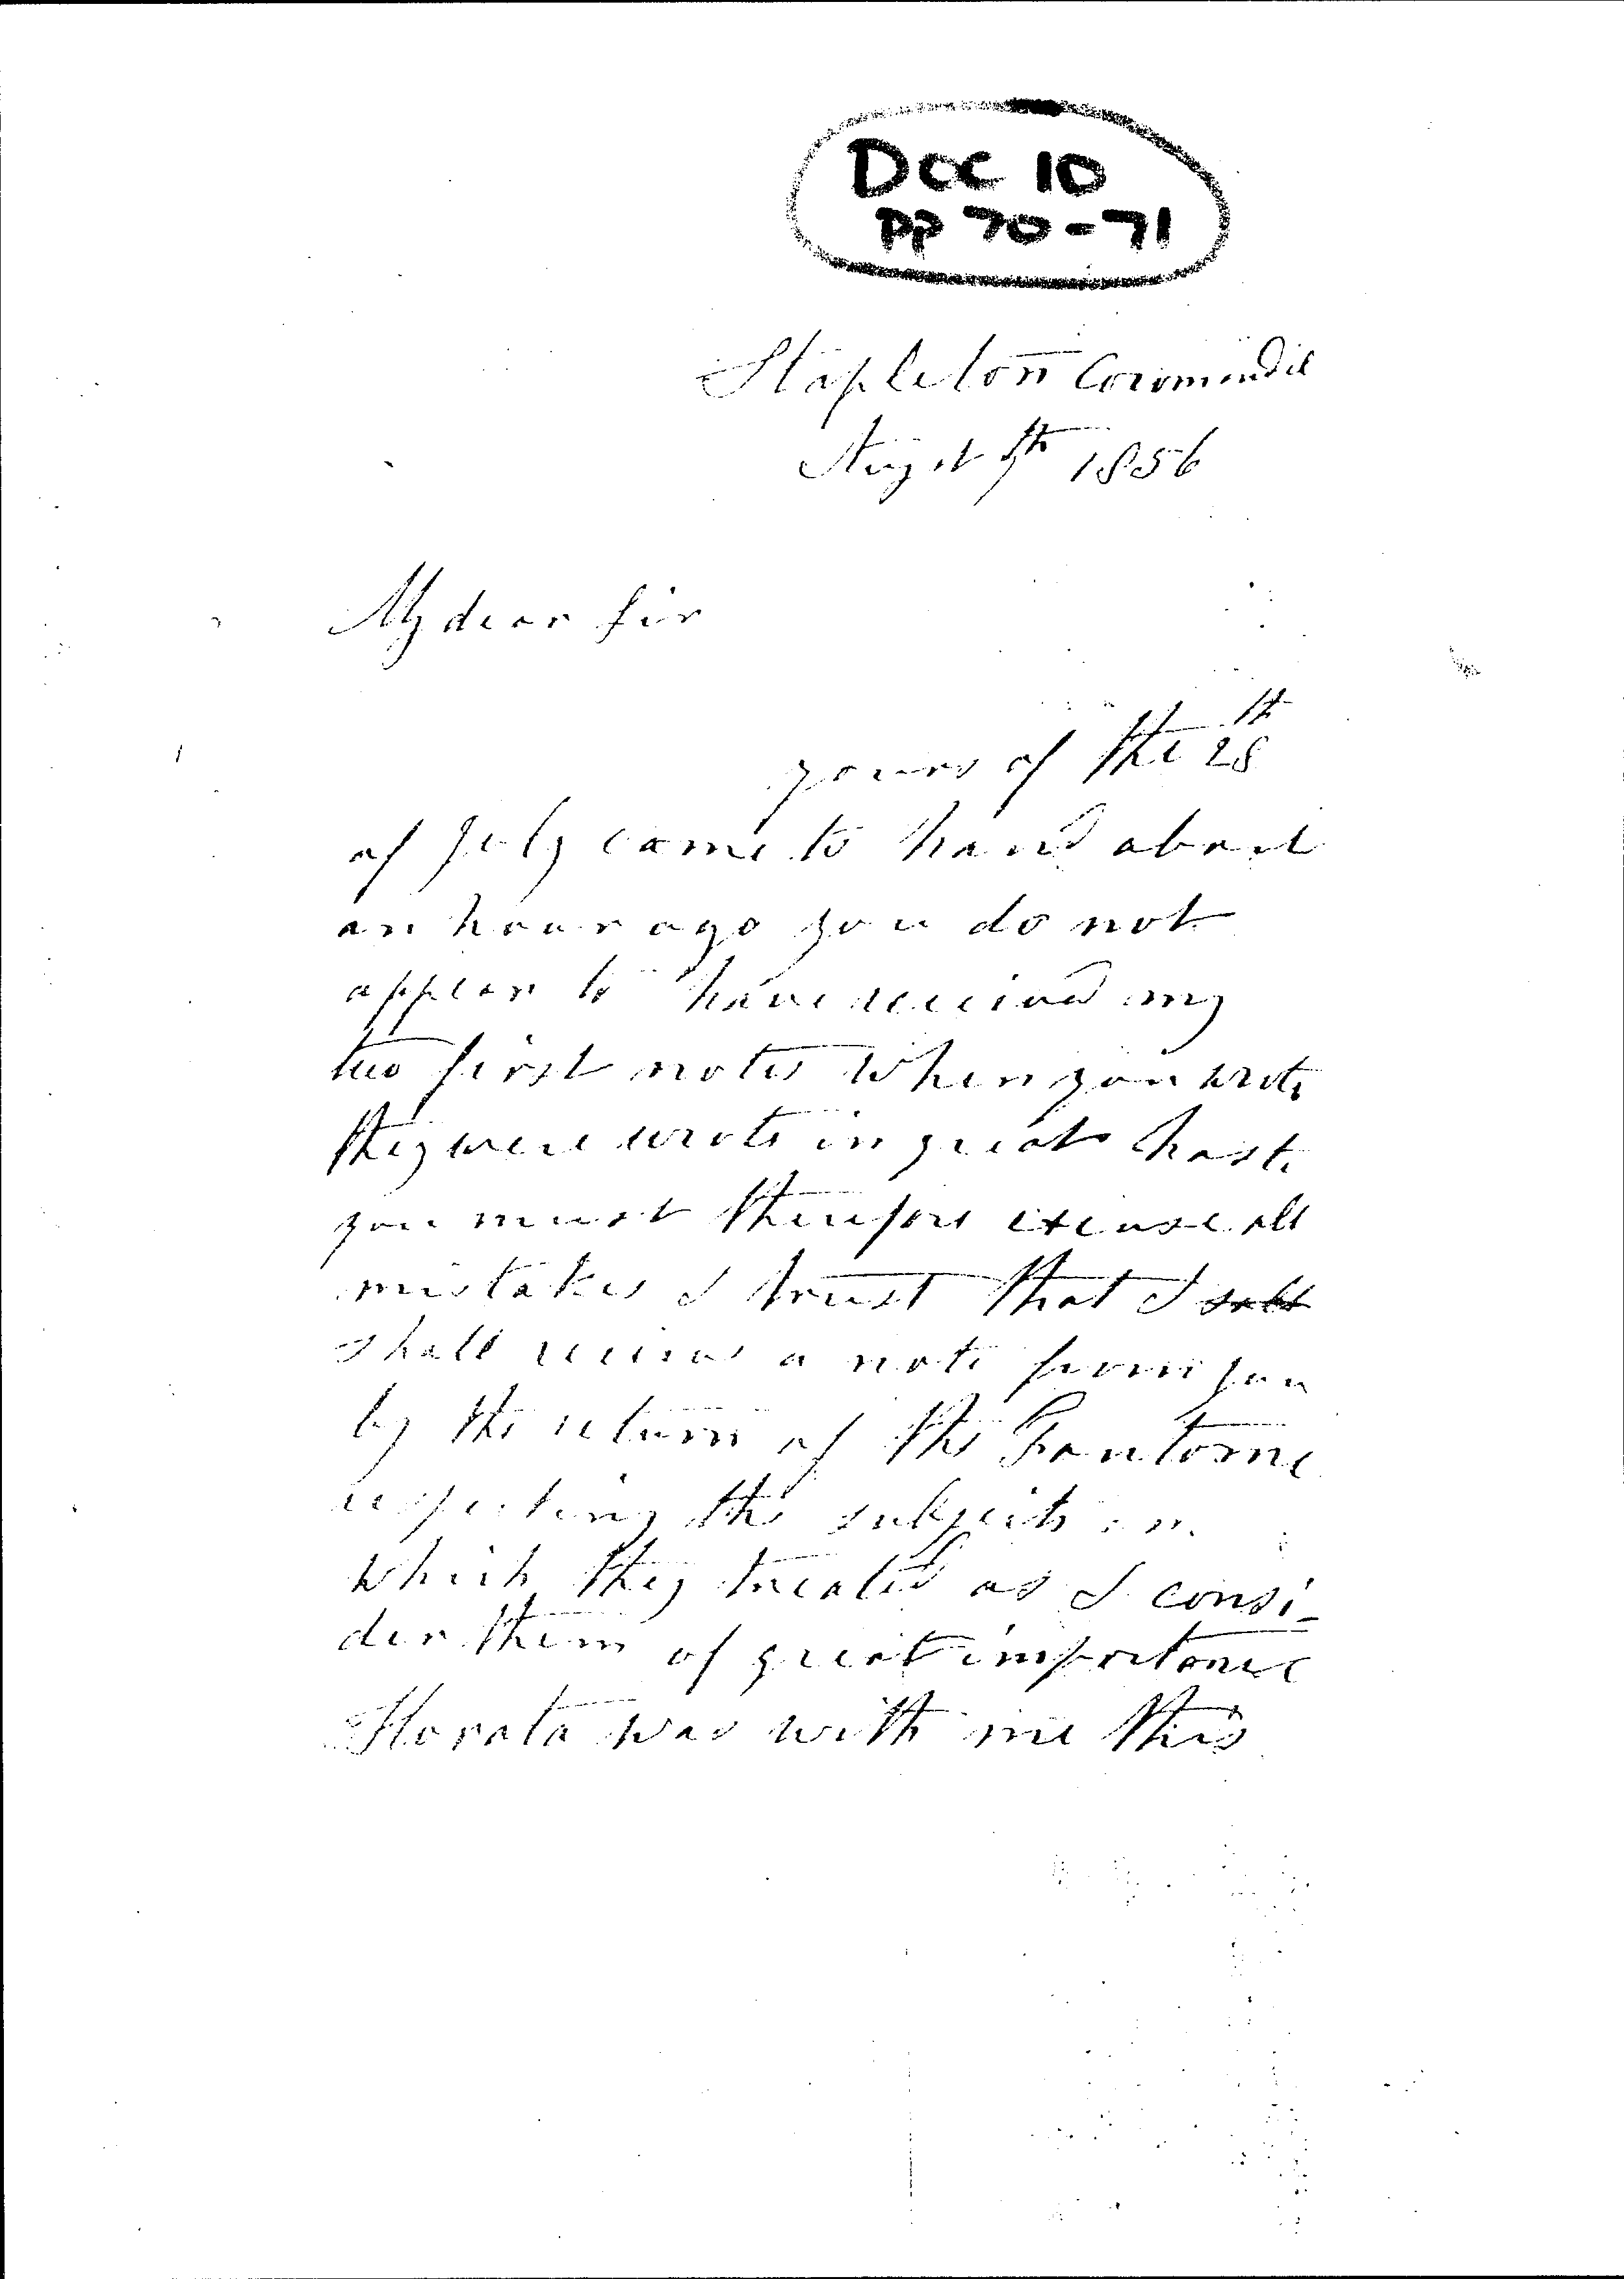 DOC 10
PP 70-71
Stapleton Coromandil
August 7th 1856
My dear Sir
yours of the 28th
of July came to hand about
an hour ago you do not
appear to have received my
two first notes when you wrote
they were wrote in great haste
you must therefore excuse all
mistakes I trust that I
shall receive a note from you
by the return of the Fantome
respecting the subjects on
which they treated as I consi-
der them of great importance
Horata was with me this